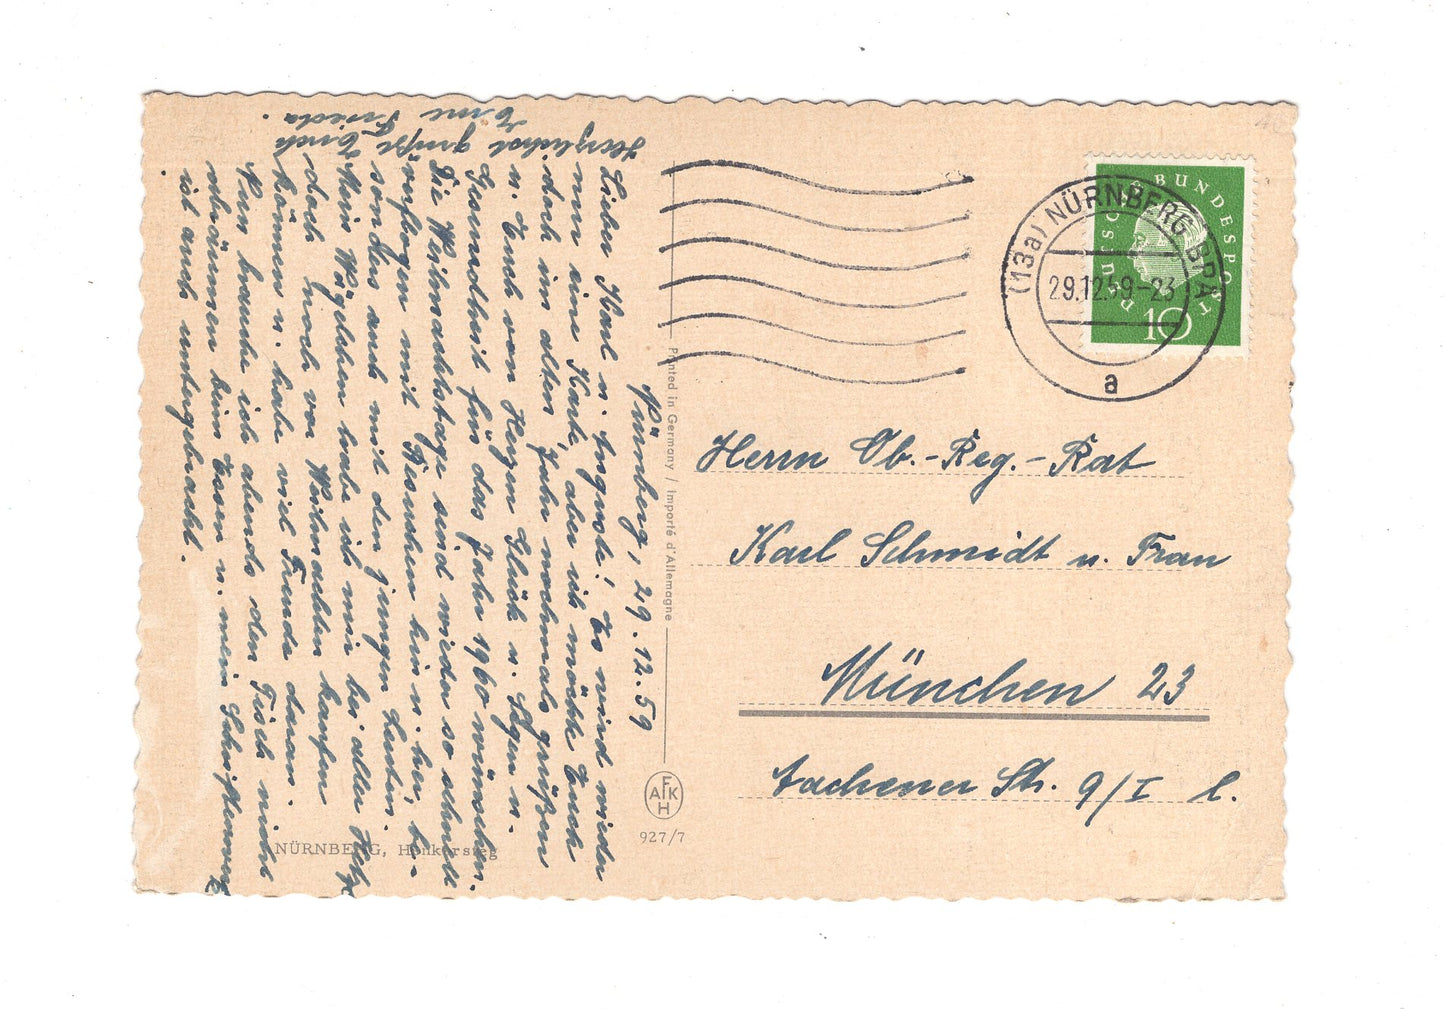 Nürnberg, 29.12.59
Lieber Karl u. Auguste! Es wird wieder
nur eine Karte, aber ich möchte Euch
doch im alten Jahr nochmals grüßen
u. Euch von Herzen Glück u. Segen u.
Gesundheit für das Jahr 1960 wünschen.
Die Weihnachtstage sind wieder so schnell
verflogen mit Besuchen hin u. her, be-
sonders auch mit den jungen Leuten.
Mein Wägelchen habe ich mir bei aller Hetze
doch noch vor Weihnachten kaufen
können u. habe viel Freude daran.
Nun brauche ich abends den Tisch nicht
abräumen beim Essen u. mein
ist auch untergebracht.
Herzlichst grüßt Euch
Eure Frieda.
NÜRNBERG, Henkersteg
Printed in Germany / Importé d'Allemagne
AFKH
927/7
DEUTSCHE BUNDESPOST
10
(13a) NÜRNBERG BPA
29.12.59-23
a
Herrn Ob.-Reg.-Rat
Karl Schmidt u. Frau
München 23
Aachener Str. 9/I l.